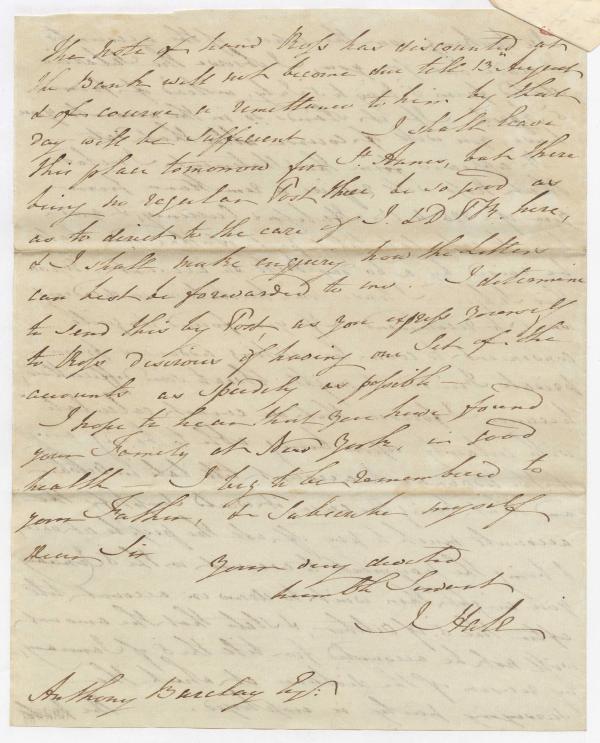 The Note of hand Ross has discounted at
the Bank will not become due till 13 August
& of course a remittance to him by that
day will be sufficient I shall leave
this place tomorrow for St. Annes, but there
being no regular Post there, be so good as
as to direct to the care of J. & D here,
& I shall make enquiry how the Letters
can best be forwarded to me. I determine
to send this by Post, as you express yourself
to Ross desirous of having one Set of the
accounts as speedily as possible —
I hope to hear that you have found
your Family at New York, in good
health — I beg to be remembered to
your Father, & subscribe myself
Dear Sir your very devoted
humble Servant
J Hale
Anthony Barclay Esqr.